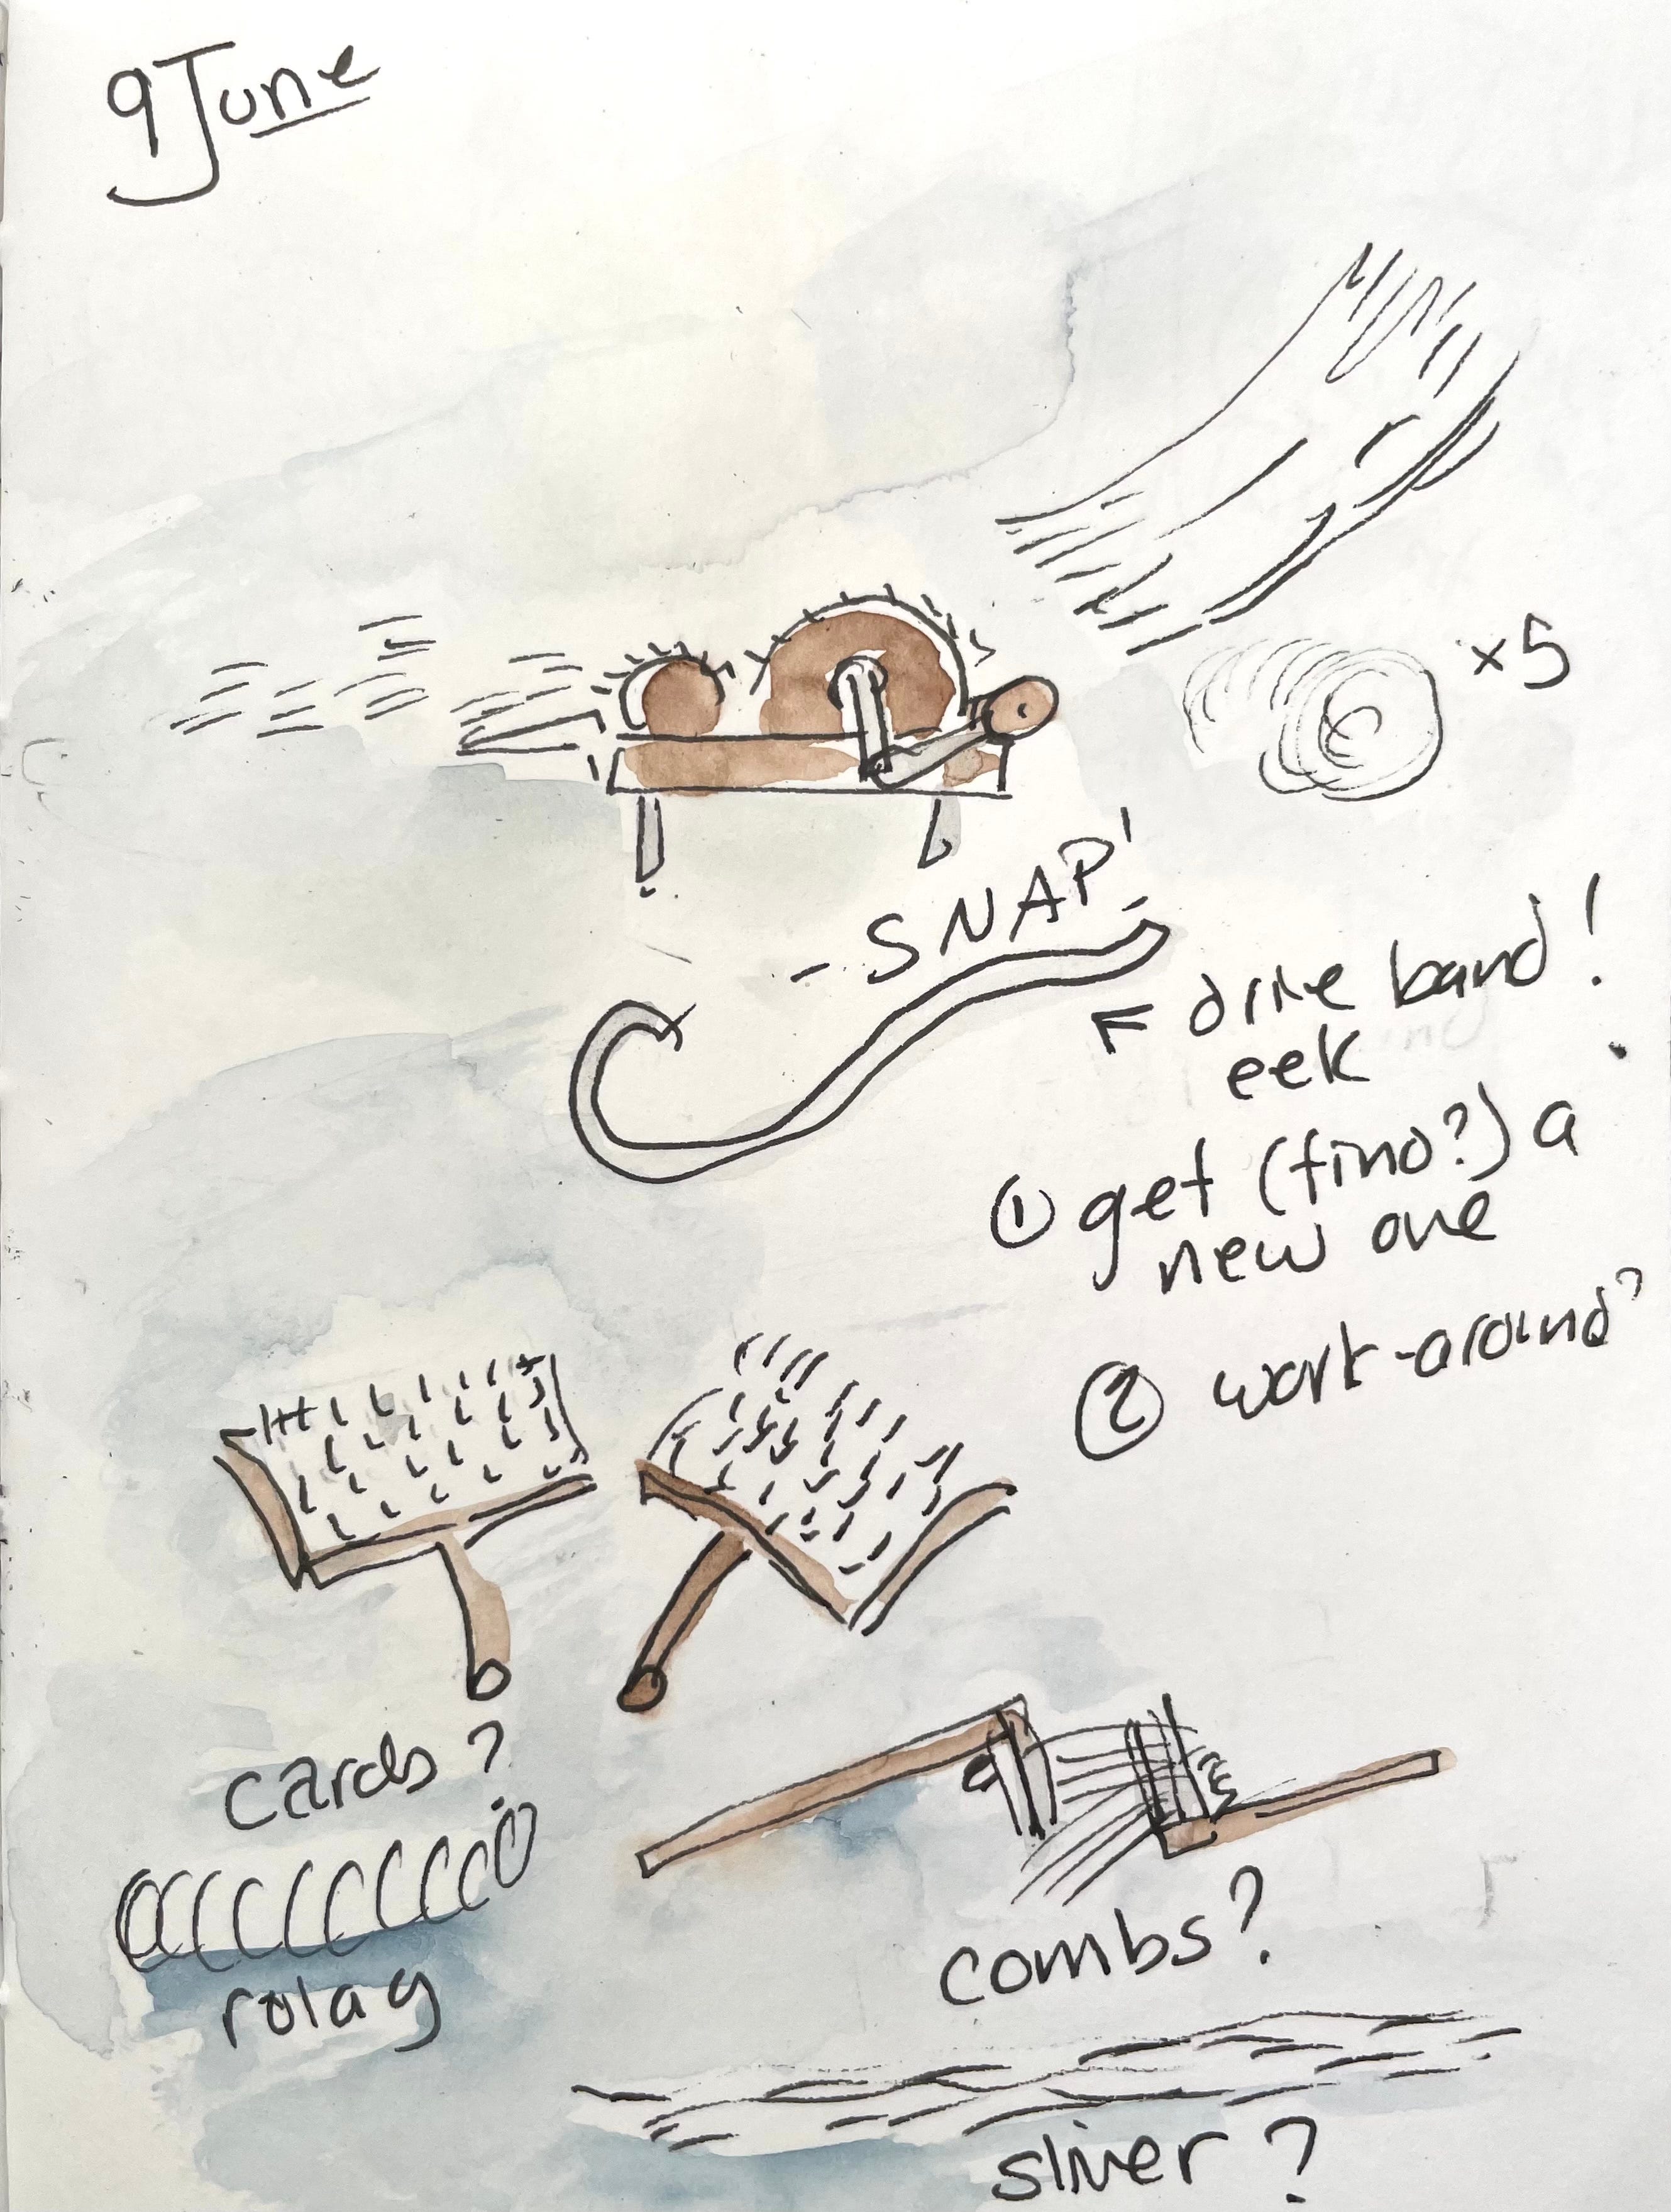 9 June
x5
- SNAP!
← drive band!
eek
① get (find?) a
new one
② work-around?
cards?
rolag
combs?
sliver?